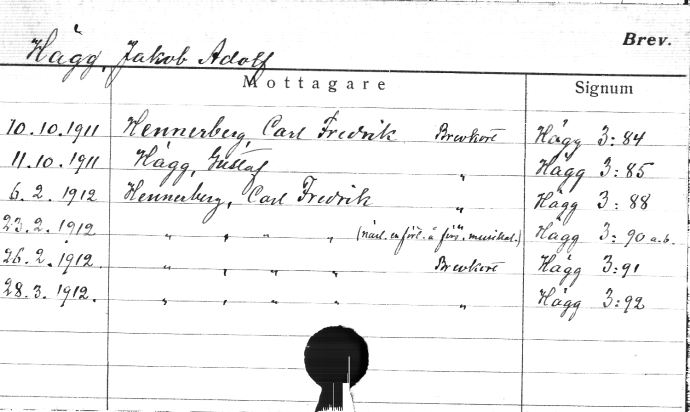 Brev.
Hägg, Jakob Adolf
Mottagare Signum
10.10.1911 Hennerberg, Carl Fredrik Brevkort Hägg 3:84
11.10.1911 Hägg, Gustaf " Hägg 3:85
6.2.1912 Hennerberg, Carl Fredrik " Hägg 3:88
23.2.1912 " , " " musikal.) Hägg 3:90 a.b.
26.2.1912 " , " " Brevkort Hägg 3:91
28.3.1912. " , " " " Hägg 3:92